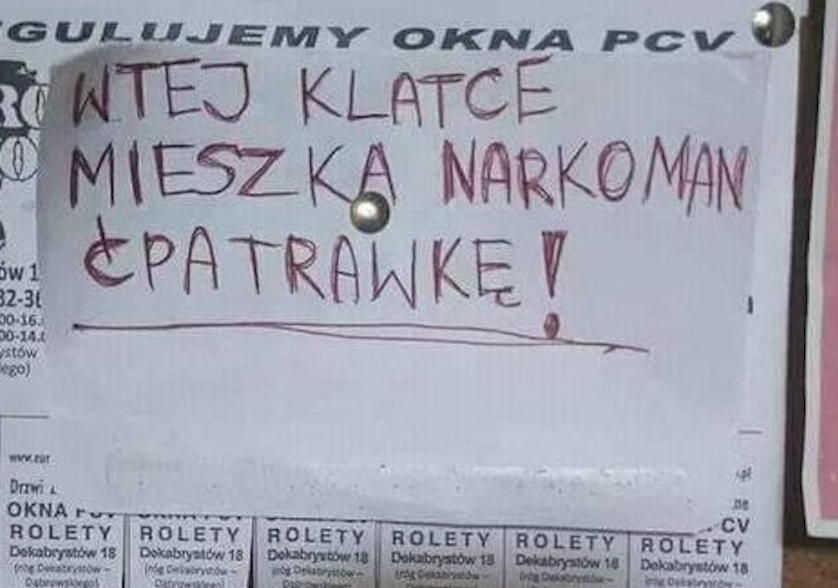 GULUJEMY OKNA PCV
WTEJ KLATCE
MIESZKA NARKOMAN
ĆPATRAWKĘ!
ów 1
32-36
00-16.
00-14.
ystów
ego)
www.eur
Drzwi
OKNA PCV
CV
ROLETY ROLETY ROLETY ROLETY ROLETY ROLETY
Dekabrystów 18 Dekabrystów 18 Dekabrystów 18 Dekabrystów 18 Dekabrystów 18 Dekabrystów 18
(róg Dekabrystów – (róg Dekabrystów – (róg Dekabrystów – (róg Dekabrystów – (róg Dekabrystów – (róg Dekabrystów –
Dąbrowskiego) Dąbrowskiego) Dąbrowskiego) Dąbrowskiego) Dąbrowskiego) Dąbrowskiego)